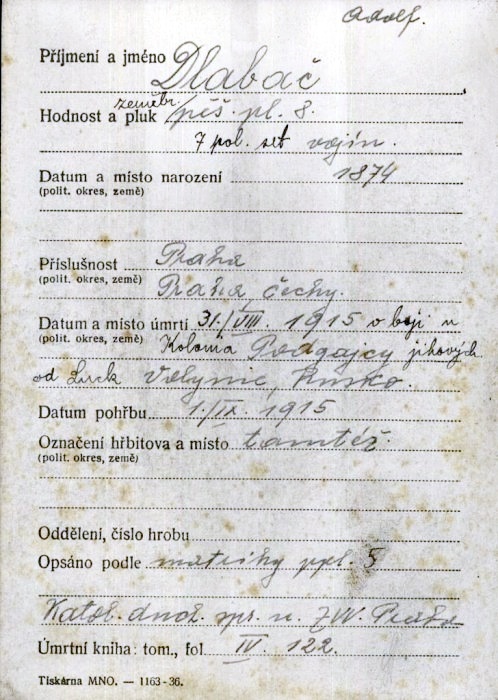 Adolf.
Příjmení a jméno Dlabač
zeměbr.
Hodnost a pluk pěš. pl. 8.
7 pol. set. vojín.
Datum a místo narození 1874
(polit. okres, země)
Příslušnost Praha
(polit. okres, země) Praha, Čechy.
Datum a místo úmrtí 31./VIII. 1915 v boji u
(polit. okres, země) Kolonia Podgajcy jihových.
od Luck Volynie, Rusko.
Datum pohřbu 1./IX. 1915
Označení hřbitova a místo tamtéž.
(polit. okres, země)
Oddělení, číslo hrobu
Opsáno podle matriky ppl. 5
Katol. duch. spr. u ZVV. Praha
Úmrtní kniha: tom., fol IV. 122.
Tiskárna MNO. — 1163-36.